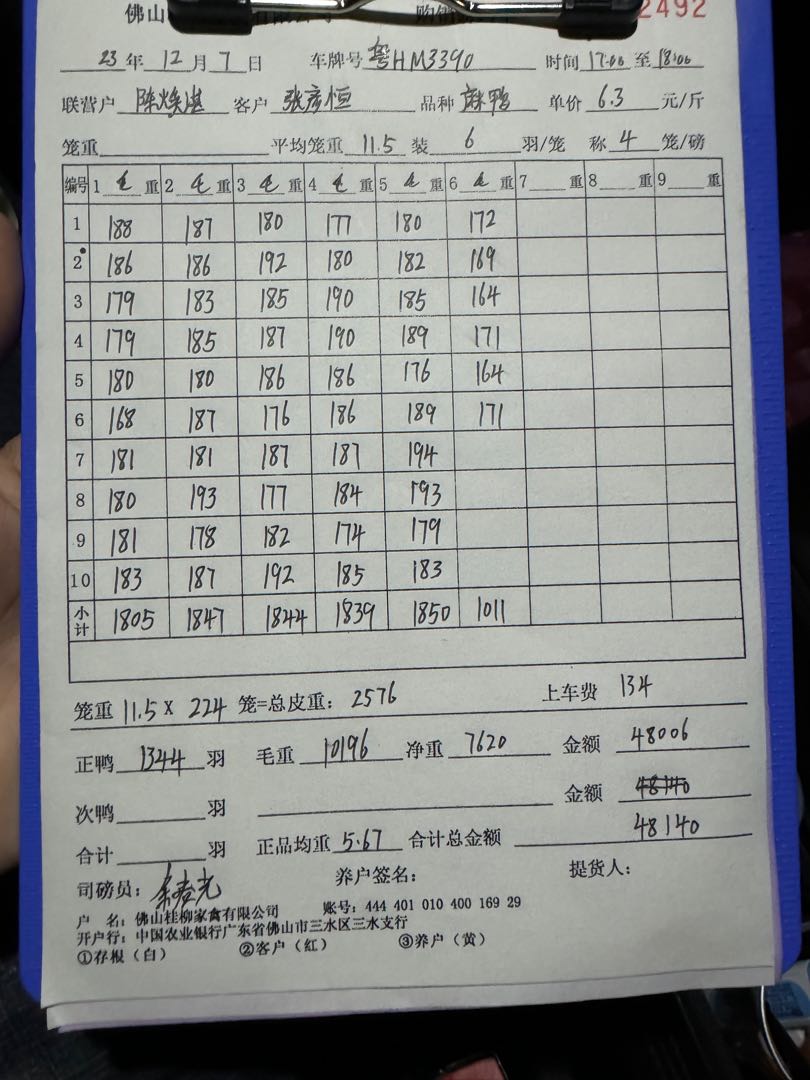 佛山
购销
2492
23 年 12 月 7 日 车牌号 粤HM3390 时间 17:00 至 18:00
联营户 陈焕湛 客户 张彦恒 品种 麻鸭 单价 6.3 元/斤
笼重 平均笼重 11.5 装 6 羽/笼 称 4 笼/磅
编号 1 毛 重 2 毛 重 3 毛 重 4 毛 重 5 毛 重 6 毛 重 7 重 8 重 9 重
1 188 187 180 177 180 172
2 186 186 192 180 182 169
3 179 183 185 190 185 164
4 179 185 187 190 189 171
5 180 180 186 186 176 164
6 168 187 176 186 189 171
7 181 181 187 187 194
8 180 193 177 184 193
9 181 178 182 174 179
10 183 187 192 185 183
小计 1805 1847 1844 1839 1850 1011
笼重 11.5 X 224 笼=总皮重: 2576 上车费 134
正鸭 1344 羽 毛重 10196 净重 7620 金额 48006
次鸭 羽 金额 48140
合计 羽 正品均重 5.67 合计总金额 48140
司磅员: 养户签名: 提货人:
户 名: 佛山桂柳家禽有限公司 账号: 444 401 010 400 169 29
开户行: 中国农业银行广东省佛山市三水区三水支行
①存根（白） ②客户（红） ③养户（黄）